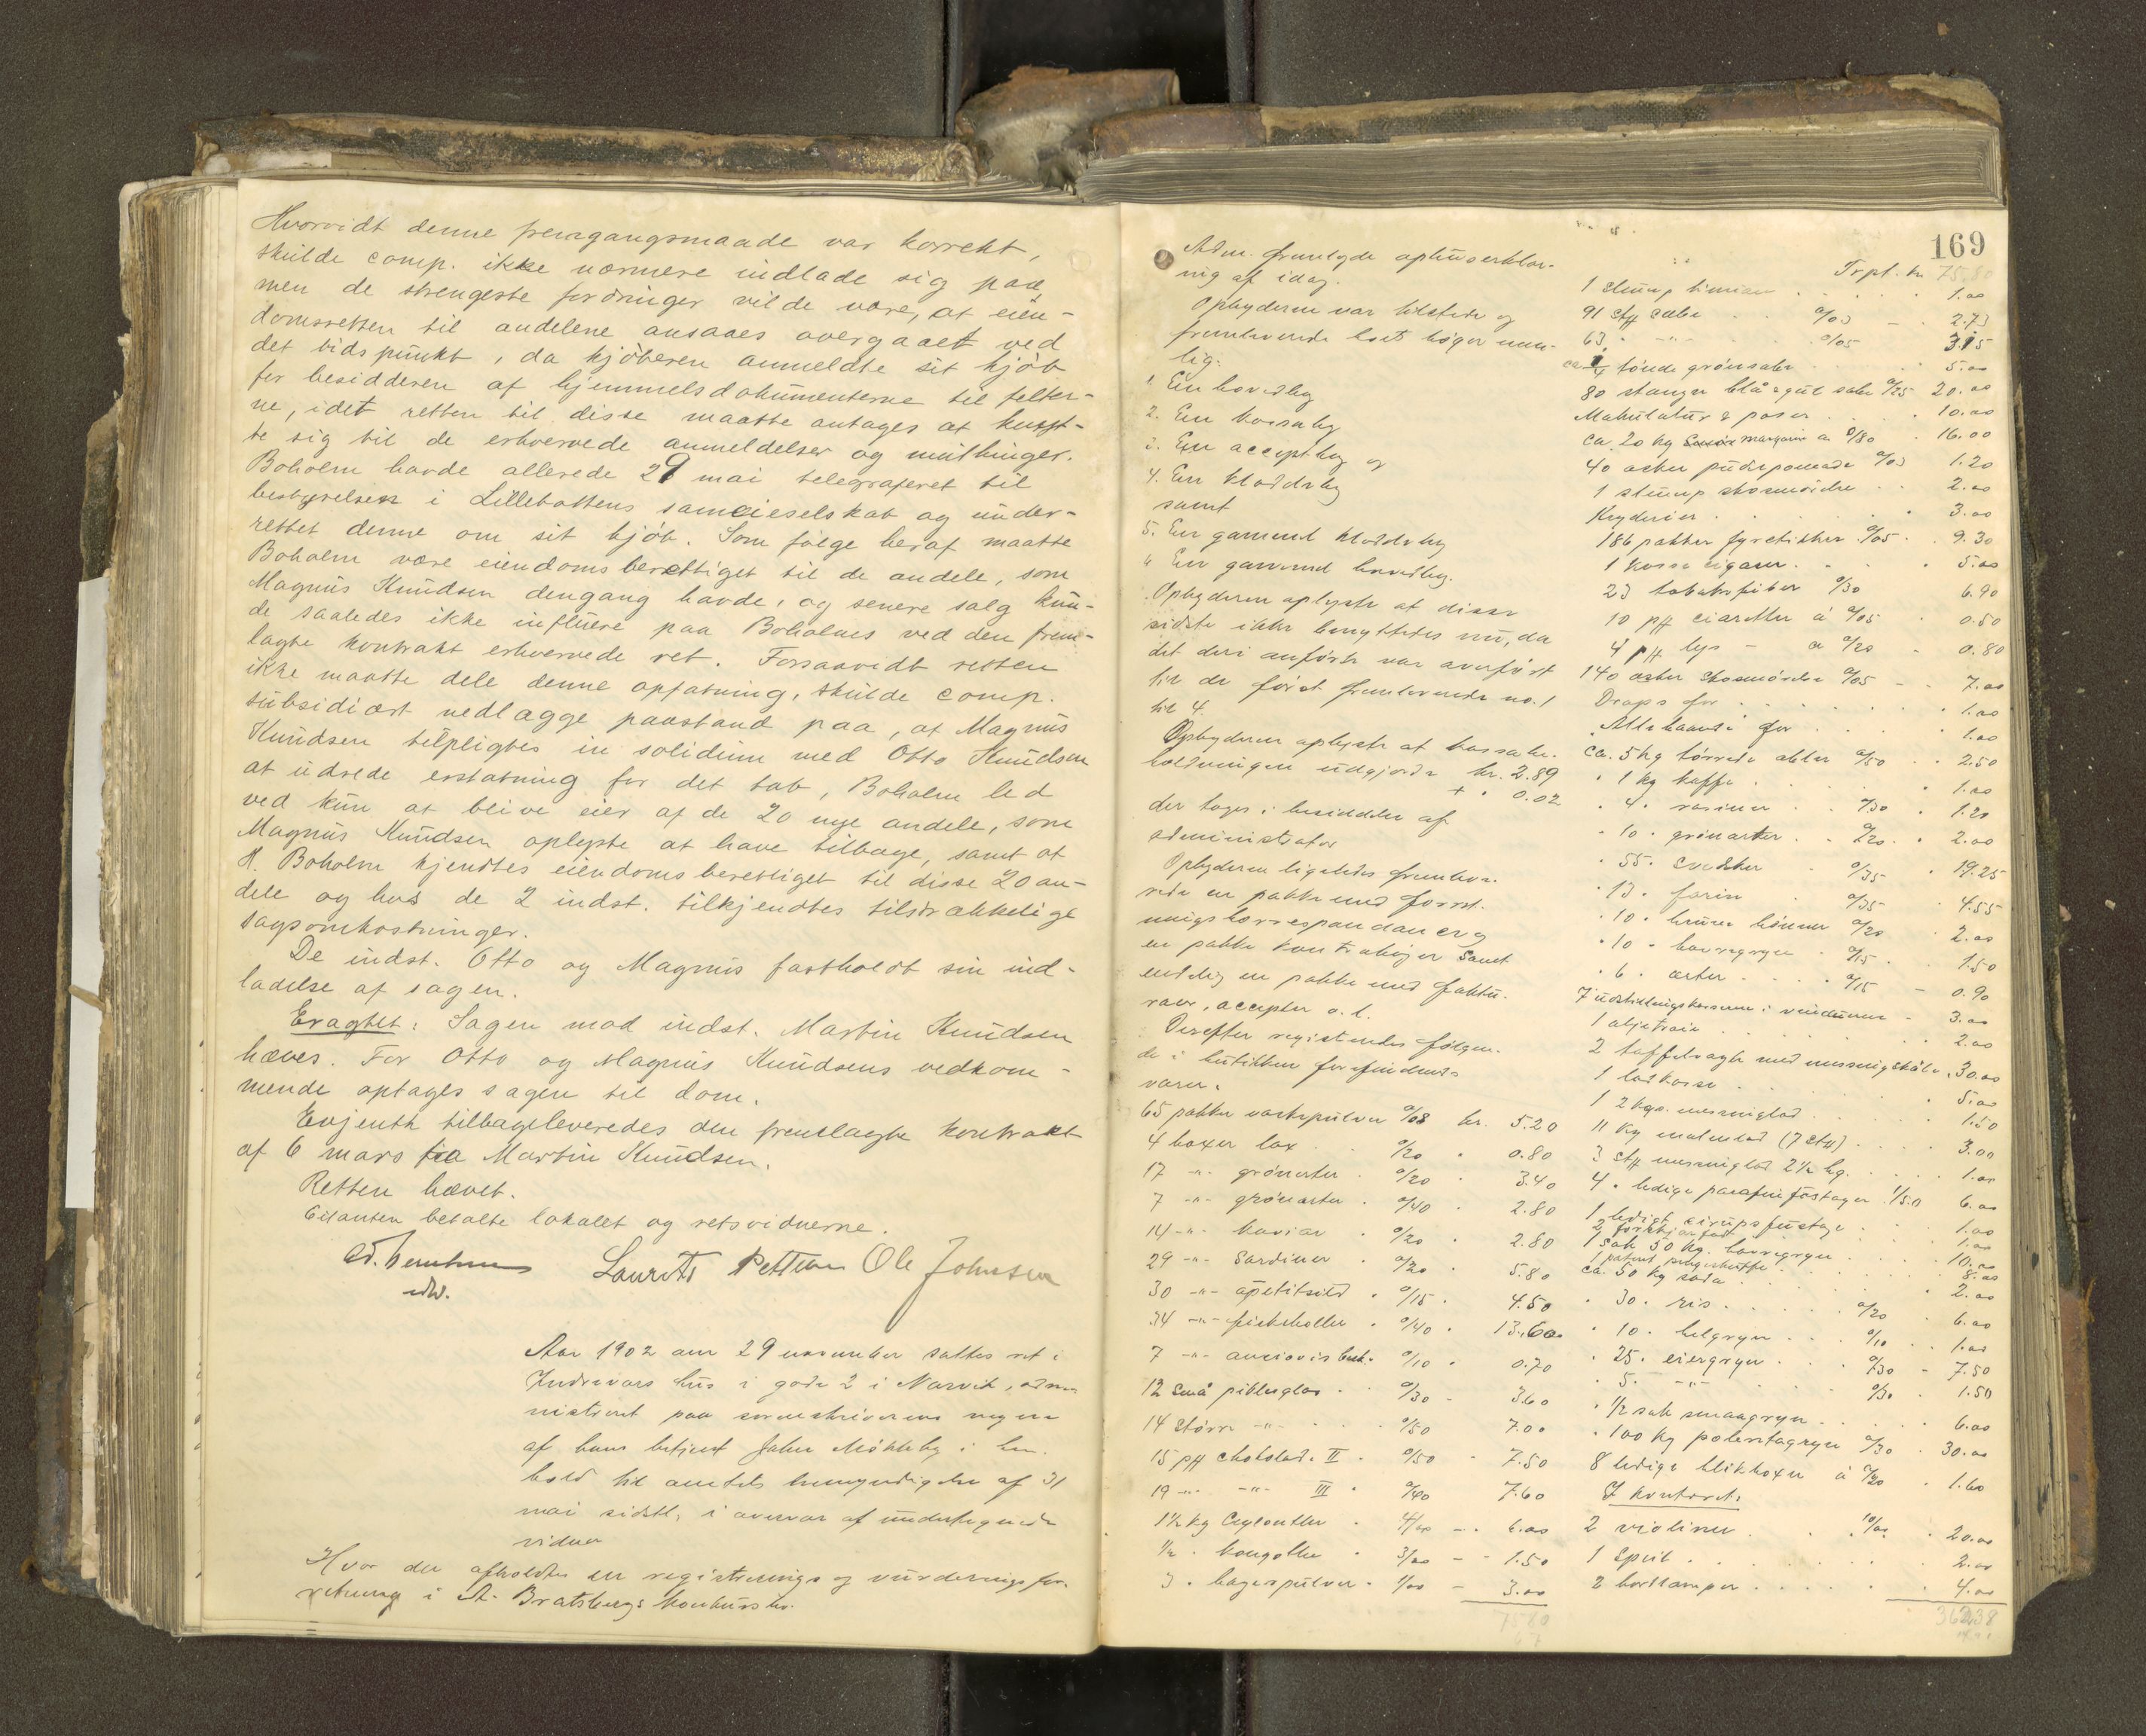 Hvorvidt denne fremgangsmaade var korrekt,
skulde comp. ikke nærmere indlade sig paa,
men de strengeste fordringer vilde være, at eien-
domsretten til andelene ansaaes overgaaet ved
det tidspunkt, da kjöberen anmeldte sit kjöb
for besidderen af hjemmelsdokumenterne til felter-
ne, idet retten til disse maatte antages at knyt-
te sig til de erhvervede anmeldelser og muthinger.
Boholm havde allerede 29 mai telegraferet til
bestyrelsen i Lillebottens sameieselskab og under-
rettet denne om sit kjöb. Som følge heraf maatte
Boholm være eiendomsberettiget til de andele, som
Magnus Knudsen dengang havde, og senere salg kun-
de saaledes ikke influere paa Boholms ved den frem-
lagte kontrakt erhvervede ret. Forsaavidt retten
ikke maatte dele denne opfatning, skulde comp.
subsidiært nedlægge paastand paa, at Magnus
Knudsen tilpligtes in solidum med Otto Knudsen
at udrede erstatning for det tab, Boholm led
ved kun at blive eier af de 20 nye andele, som
Magnus Knudsen oplyste at have tilbage, samt at
H. Boholm kjendtes eiendomsberettiget til disse 20 an-
dele og hos de 2 indst. tilkjendtes tilstrækkelige
sagsomkostninger.
De indst. Otto og Magnus fastholdt sin ind-
ladelse af sagen.
Eragtet: Sagen mod indst. Martin Knudsen
hæves. For Otto og Magnus Knudsens vedkom-
mende optages sagen til dom.
Evjenth tilbageleveredes den fremlagte kontrakt
af 6 mars fra Martin Knudsen.
Retten hævet.
Citanten betalte lokalet og retsvidnerne.
Laurits Pettersen Ole Johnsen
Aar 1902 den 29 november sattes ret i
hus i gade 2 i Narvik, admi-
nistreret paa sorenskriverens vegne
af hans betjent John Mökleby i hen-
hold til amtets bemyndigelse af 31
mai sidstl. i overvær af undertegnede
vidner
Hvor da afholdtes en registrerings og vurderingsfor-
retning i A. Bratsbergs konkursbo.
169
Adm. fremlagde opbudserklær-
ing af idag.
Opbyderen var tilstede og
fremleverede boets bøger nem-
lig:
1. En hovedbog
2. En kassabog
3. En acceptbog og
4. En kladdebog
samt
5. En gammel kladdebog
" En gammel hovedbog.
Opbyderen oplyste at disse
sidste ikke benyttedes nu, da
det deri anførte var overført
til de først fremleverede no. 1
til 4
Opbyderen oplyste at kassabe-
holdningen udgjorde kr. 2.89
+ " 0.02
der toges i besiddelse af
administrator
Opbyderen ligeledes fremleve-
rede en pakke med forret-
ningskorrespondance og
en pakke kontrabøger samt
endelig en pakke med faktu-
raer, accepter o. l.
Derefter registreredes følgen-
de i butikken forefindende
varer.
65 pakker vaskepulver 0/08 kr. 5.20
4 boxer lax 0/20 " 0.80
17 -"- grönerter 0/20 " 3.40
7 -"- grönerter 0/40 " 2.80
14 -"- kaviar 0/20 " 2.80
29 -"- Sardiner 0/20 " 5.80
30 -"- apetitsild 0/15 " 4.50
34 -"- fiskeboller 0/40 " 13.60
7 -"- anciovis 0/10 " 0.70
12 små piklesglas 0/30 - 3.60
14 större -"- 0/50 7.00
15 pk chokolade II 0/50 - 7.50
19 -"- -"- III 0/40 7.60
1½ kg Ceylonthe 4/00 - 6.00
½ " kongothe 3/00 - 1.50
3 " bagerpulver 1/00 - 3.00
75.80
Trpt. kr 75.80
1 slump timian 1.00
91 stk sæbe 0/03 - 2.73
63 " -"- 0/05 3.15
ca ¼ tönde grönsæbe 5.00
80 stanger blå & gul sæbe 0/25 20.00
Makulatur & poser 10.00
ca. 20 kg margarin a 0/80 16.00
40 æsker pudsepomade 0/03 1.20
1 slump skosmörelse 2.00
Krydderier 3.00
186 pakker fyrstikker 0/05 9.30
1 kasse cigarer 5.00
23 tobakspiber 0/30 6.90
10 pk cigaretter á 0/05 0.50
4 pk lys - a 0/20 - 0.80
140 æsker skosmörelse 0/05 - 7.00
Drops for 1.00
"Allehaande" for 1.00
ca. 5 kg törrede æbler 0/50 2.50
" 1 kg kaffe 1.00
" 4 " rosiner 0/30 " 1.20
" 10 " grönerter 0/20 " 2.00
" 55 " svedsker 0/35 " 19.25
" 13 " farin 0/35 " 4.55
" 10 " brune bönner 0/20 2.00
" 10 " havregryn 0/15 1.50
" 6 " erter 0/15 - 0.90
7 udstillingskasser i vinduerne - 3.00
1 oljetrain 2.00
2 taffelvægte med messingskåle 30.00
1 5.00
1 2 kgs. messinglod 1.50
11 kg malmlod (7 stk) 3.00
3 stk messinglod 2½ kg. 1.00
4 " ledige parafinfustager 1/50 6.00
1 ledigt sirupsfustage 1.00
1.00
1 sæk 50 kg. havregryn 10.00
1 patent 8.00
ca. 50 kg soda 2.00
" 30 " ris 0/20 6.00
" 10 " helgryn 0/10 1.00
" 25 " eiergryn 0/30 - 7.50
" 5 " -"- 0/30 " 1.50
" ½ sæk smaagryn 6.00
" 100 kg polentagryn 0/30 " 30.00
8 ledige blikboxer á 0/20 " 1.60
I kontoret:
2 violiner 10/00 " 20.00
1 Speil 2.00
2 bordlamper 4.00
362.38